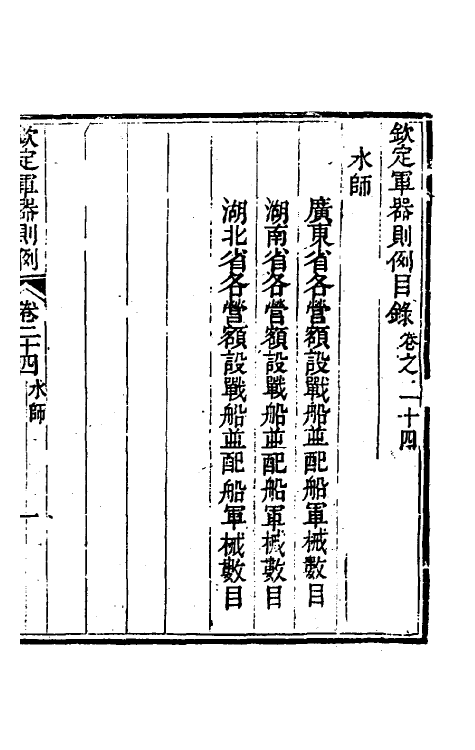 欽定軍器則例目錄卷之二十四
水師
廣東省各營額設戰船並配船軍械數目
湖南省各營額設戰船並配船軍械數目
湖北省各營額設戰船並配船軍械數目
欽定軍器則例 卷二十四水師 一